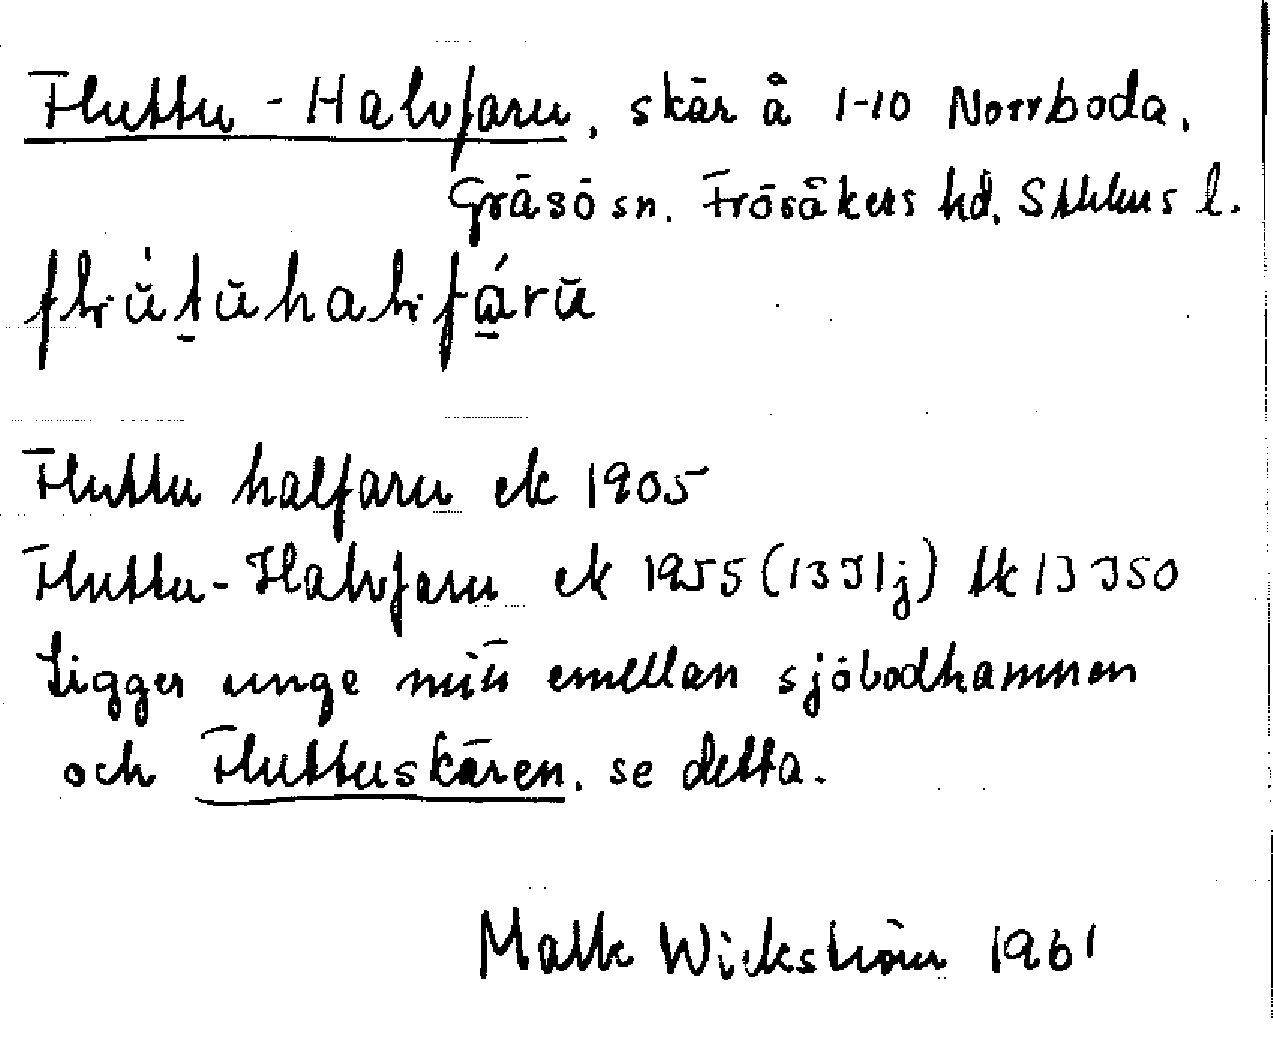 Fluttu-Halvfaru, skär å 1-10 Norrboda,
Gräsö sn. Frösåkers hd, Sthlms l.
Fluttu halfaru ek 1905
Fluttu-Halvfaru ek 1955 (13J1j) tk 13J50
Ligger unge mitt emellan sjöbodhamnen
och Fluttuskären, se detta.
Mats Wickström 1961